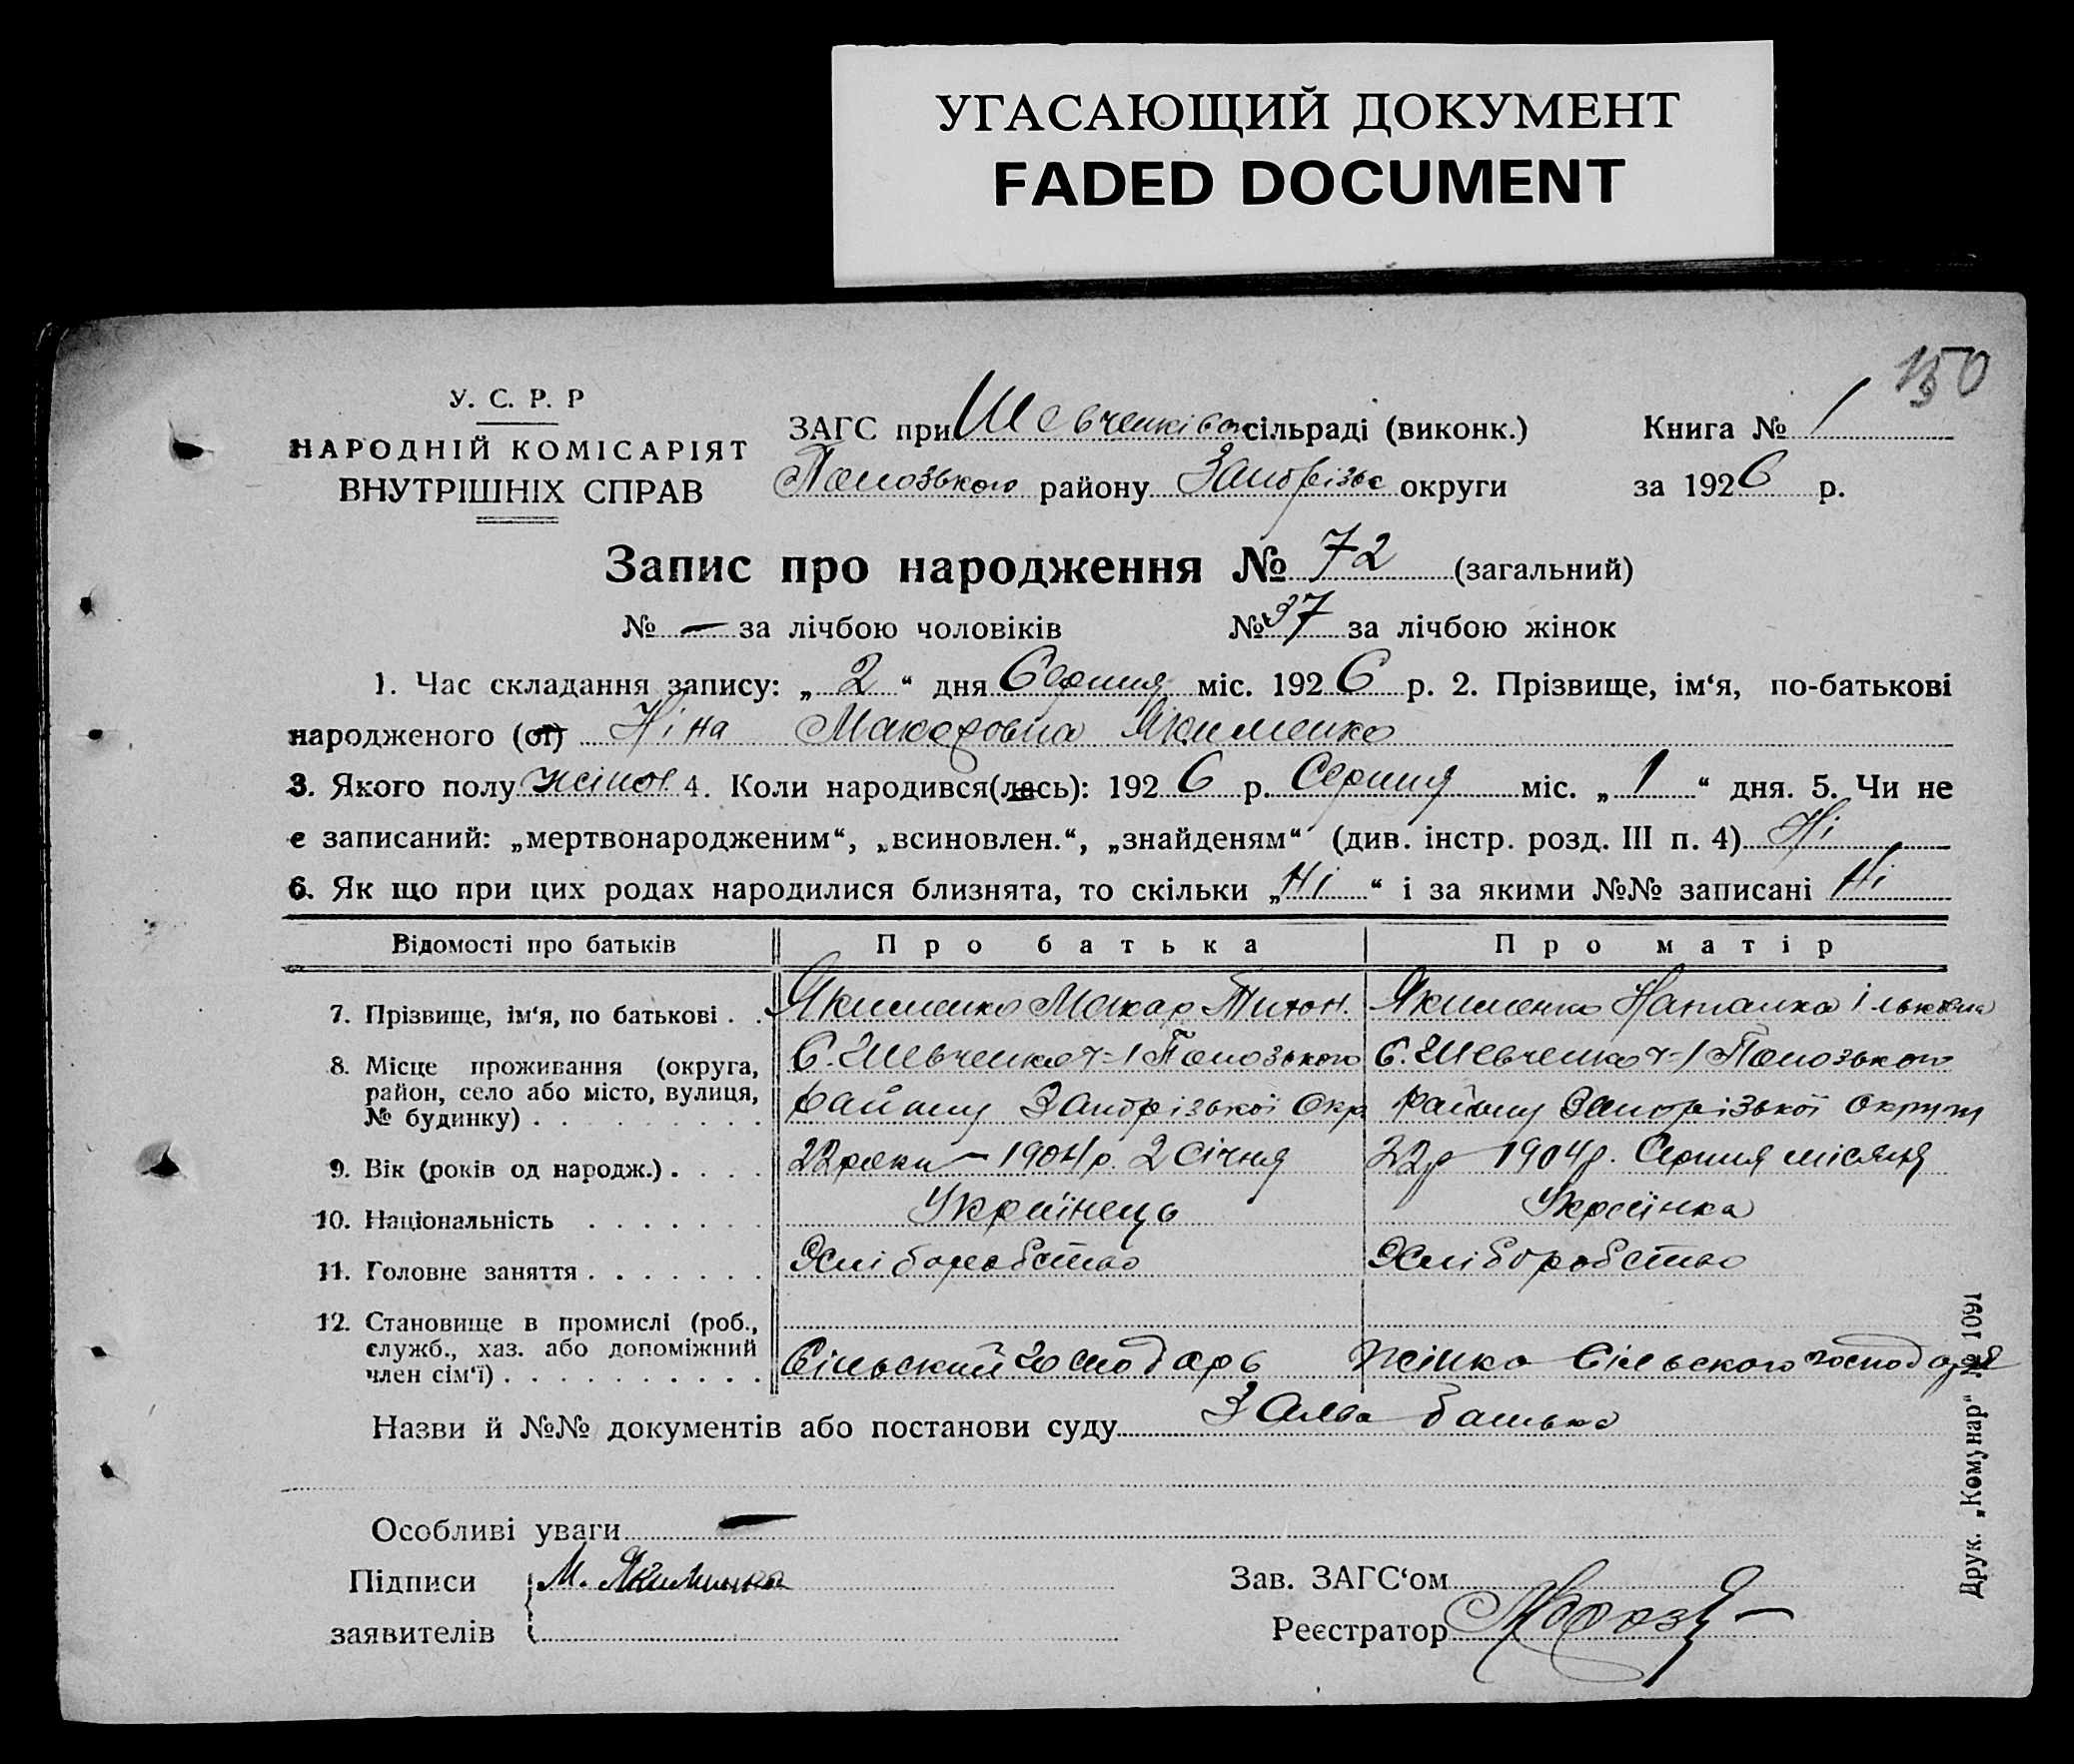 УГАСАЮЩИЙ ДОКУМЕНТ
FADED DOCUMENT
150
У. С. Р. Р
НАРОДНІЙ КОМІСАРІЯТ
ВНУТРІШНІХ СПРАВ
ЗАГС при Шевченків сільраді (виконк.)
Книга № 1
району Запорізьк округи
за 1926 р.
Запис про народження № 72 (загальний)
№ — за лічбою чоловіків № 37 за лічбою жінок
1. Час складання запису: „ 2 “ дня Серпня міс. 1926 р. 2. Прізвище, ім‘я, по-батькові
народженого (ої) Ніна Макаровна Якименко
3. Якого полу жіноч 4. Коли народився(лась): 1926 р. Серпня міс. „ 1 “ дня. 5. Чи не
є записаний: „мертвонародженим“, „всиновлен.“, „знайденям“ (див. інстр. розд. III п. 4) Ні
6. Як що при цих родах народилися близнята, то скільки „ Ні “ і за якими №№ записані Ні
Відомості про батьків Про батька Про матір
7. Прізвище, ім‘я, по батькові . . Якименко Макар Тихон. Якименко Наталка
8. Місце проживання (округа,
район, село або місто, вулиця,
№ будинку) . . . . . . . . .
С. Шевченко №1 С. Шевченко №1
району Запорізької Окр. району Запорізької округи
9. Вік (років од народж.) . . . . 22 роки — 1904 р. 2 Січня 22 р 1904 р. Серпня місяця
10. Національність . . . . . . . Українець Українка
11. Головне заняття . . . . . . . Хліборобство Хліборобство
12. Становище в промислі (роб.,
служб., хаз. або допоміжний
член сім‘ї) . . . . . . . . . . .
Сільський господарь Жінка Сільського господаря
Назви й №№ документів або постанови суду Заява батька
Особливі уваги —
Підписи М. Якименко
заявителів
Зав. ЗАГС‘ом
Реєстратор
Друк. „Комунар“ № 1091